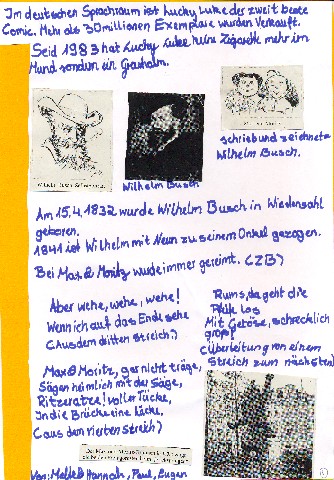 Im deutschen Sprachraum ist Lucky Luke der zweit beste
Comic. Mehr als 30 Millionen Exemplare wurden Verkauft.
Seid 1983 hat Lucky Luke keine Zigarette mehr im
Mund sondern ein Grashalm.
Wilhelm Busch
schrieb und zeichnete
Wilhelm Busch.
Am 15.4.1832 wurde Wilhelm Busch in Wiedensahl
geboren.
1841 ist Wilhelm mit Neun zu seinem Onkel gezogen.
Bei Max & Moritz wurde immer gereimt. (ZB)
Aber wehe, wehe, wehe!
Wenn ich auf das Ende sehe
(Aus dem dritten streich)
Max & Moritz, gar nicht träge,
Sägen heimlich mit der Säge,
Ritzeratze! voller Tücke,
In die Brücke eine Lücke,
(aus den vierten streich)
Rums, da geht die
Pfeife los
Mit Getöse, schrecklich
groß
(Überleitung von einem
Streich zum nächsten)
Von: Hannah, Paul, Eugen